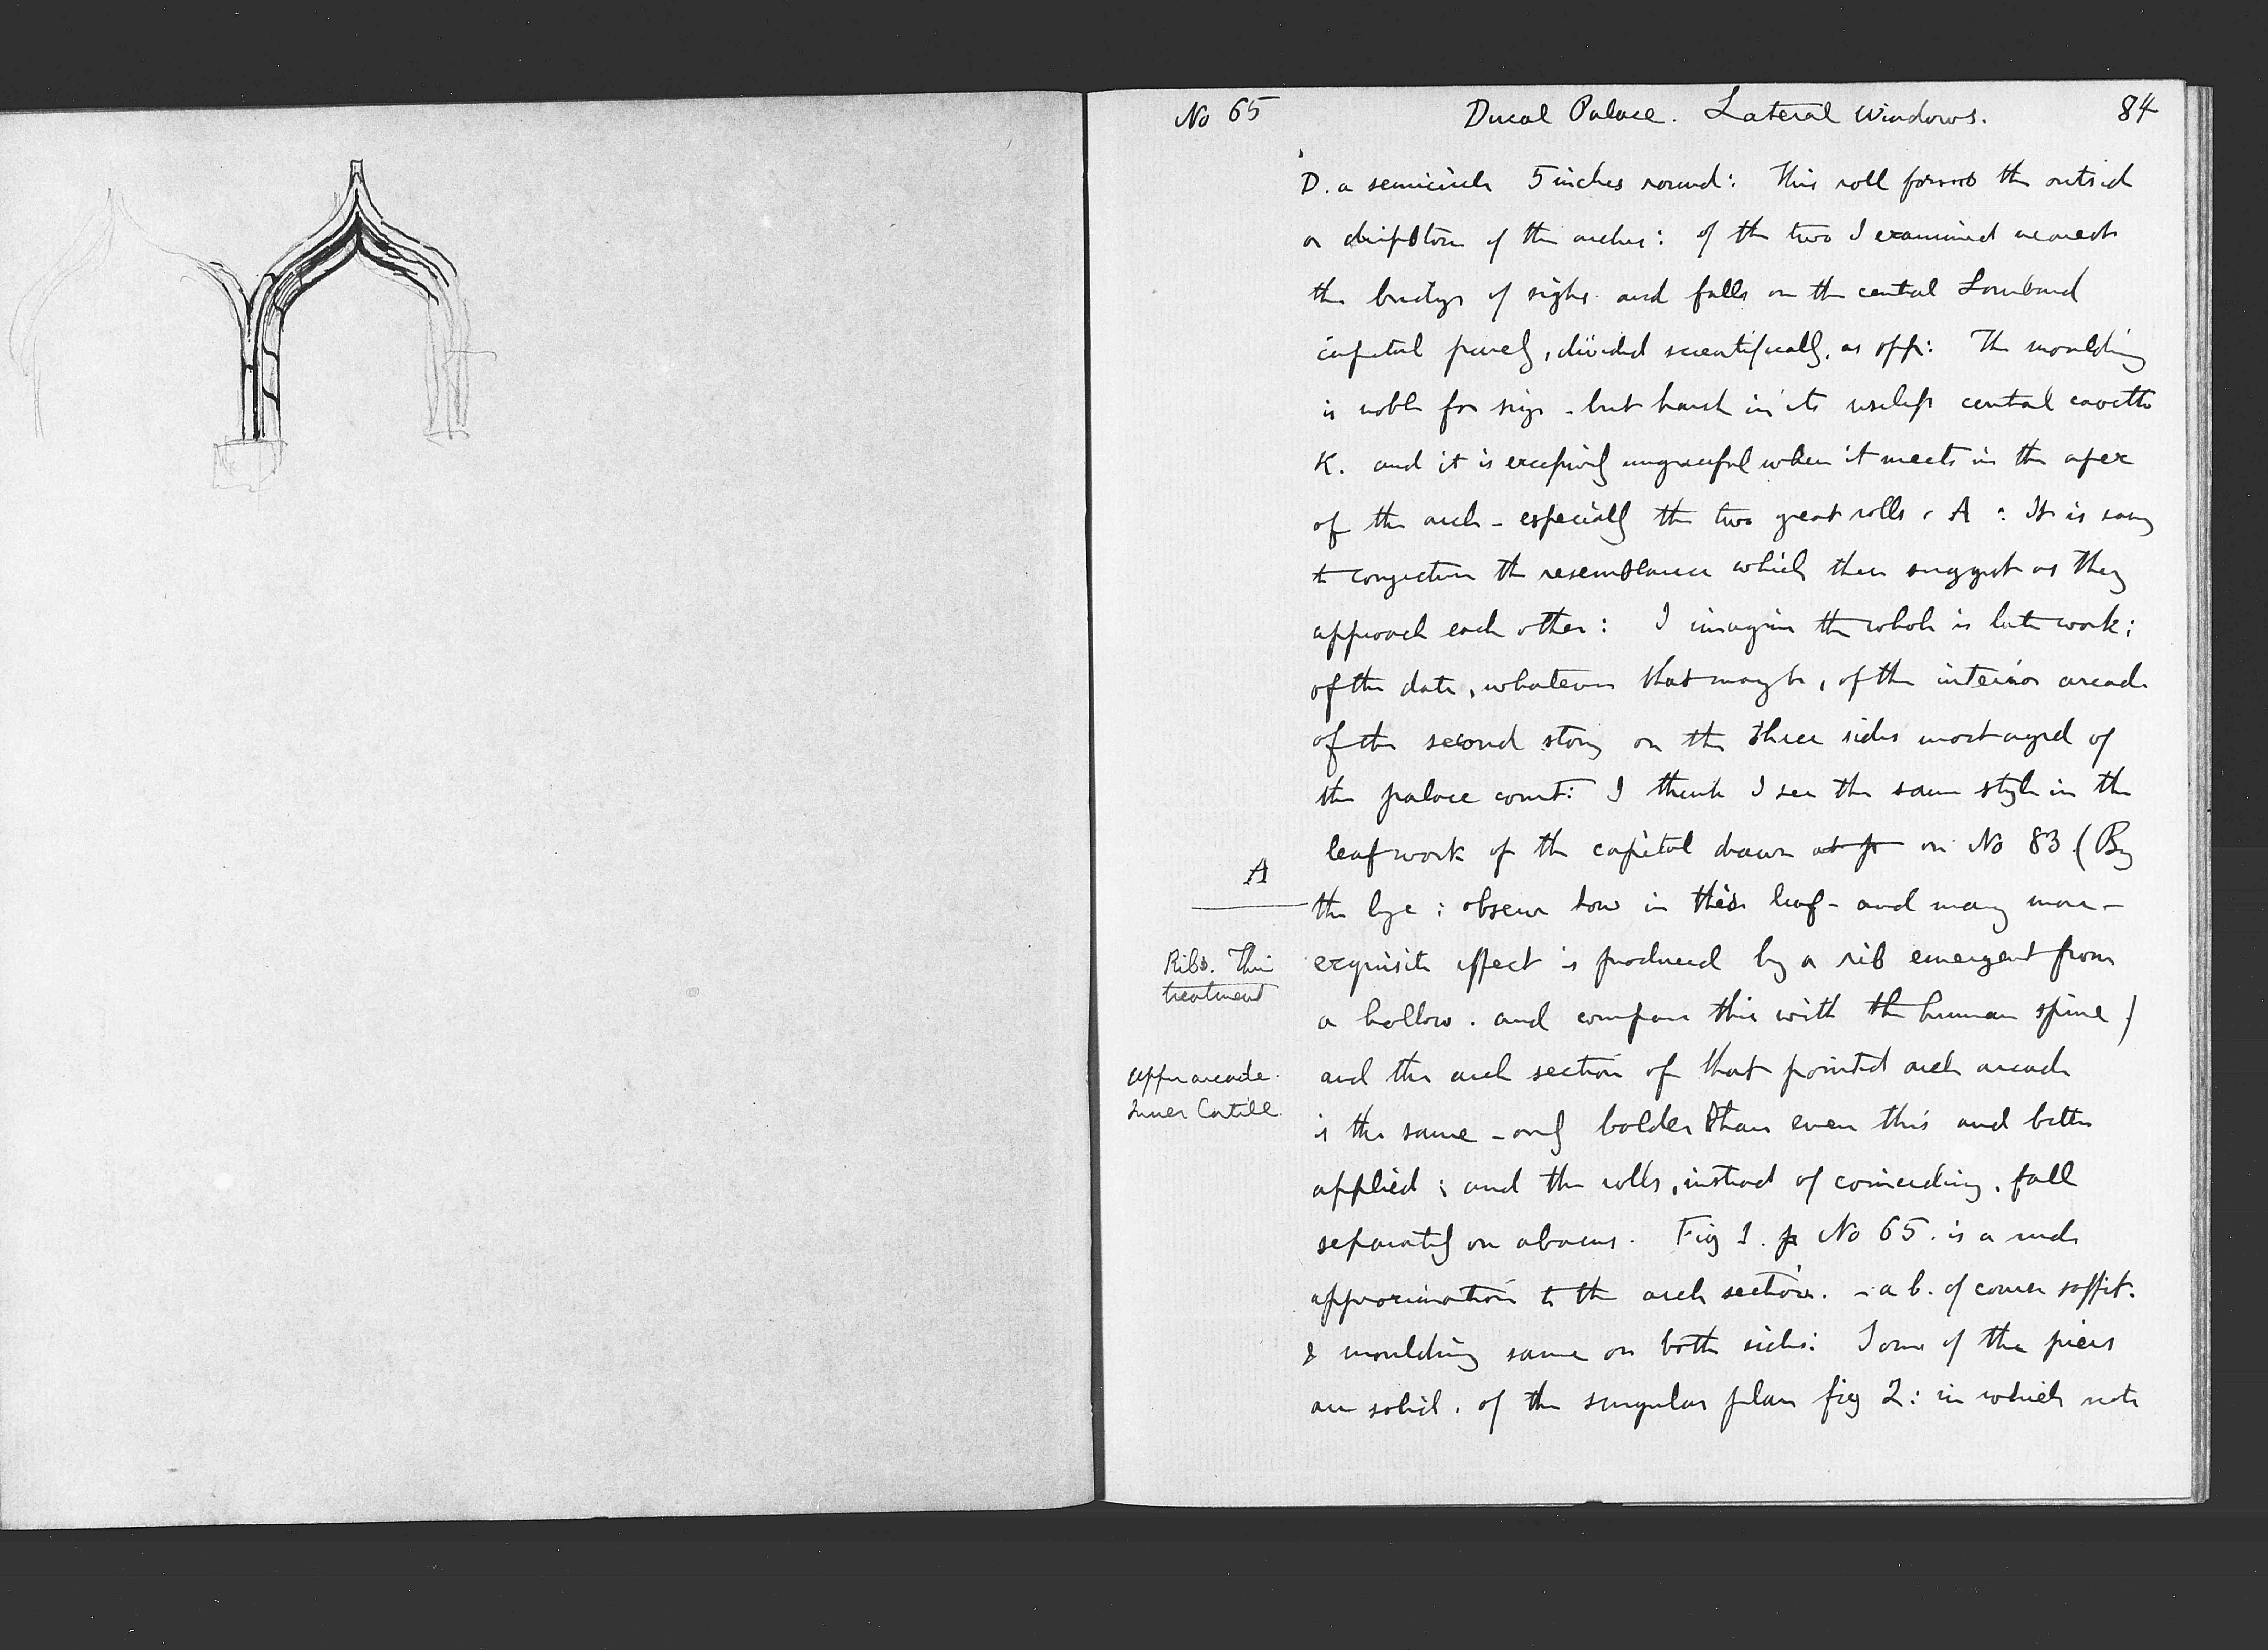 No 65 Ducal Palace. Lateral Windows. 84
D. a semicircle 5 inches round: This roll forms the outside
or dripstone of the arches: of the two I examined nearest
the bridge of sighs and falls on the central Lombard
capital purely, divided scientifically, as opp: The moulding
is noble for size - but harsh in its useless central cavetto
K. and it is excessively ungraceful when it meets in the apex
of the arch - especially the two great rolls, A: It is easy
to conjecture the resemblance which these suggest as they
approach each other: I imagine the whole is late work:
of the date, whatever that may be, of the interior arcade
of the second story on the three sides most aged of
the palace court: I think I see the same style in the
leaf work of the capital drawn at p on No 83 (By
A
the bye: observe how in this leaf - and many more -
Ribs. Their
treatment
exquisite effect is produced by a rib emergent from
a hollow. and compare this with the human spine)
Upper arcade.
Inner Cortile.
and the arch section of that pointed arch arcade
is the same - only bolder than even this and better
applied; and the rolls, instead of coinciding, fall
separately on abacus. Fig 1. p No 65. is a rude
approximation to the arch section. - a b. of course soffit.
& moulding same on both sides: Some of the piers
are solid. of the singular plan fig 2: in which note